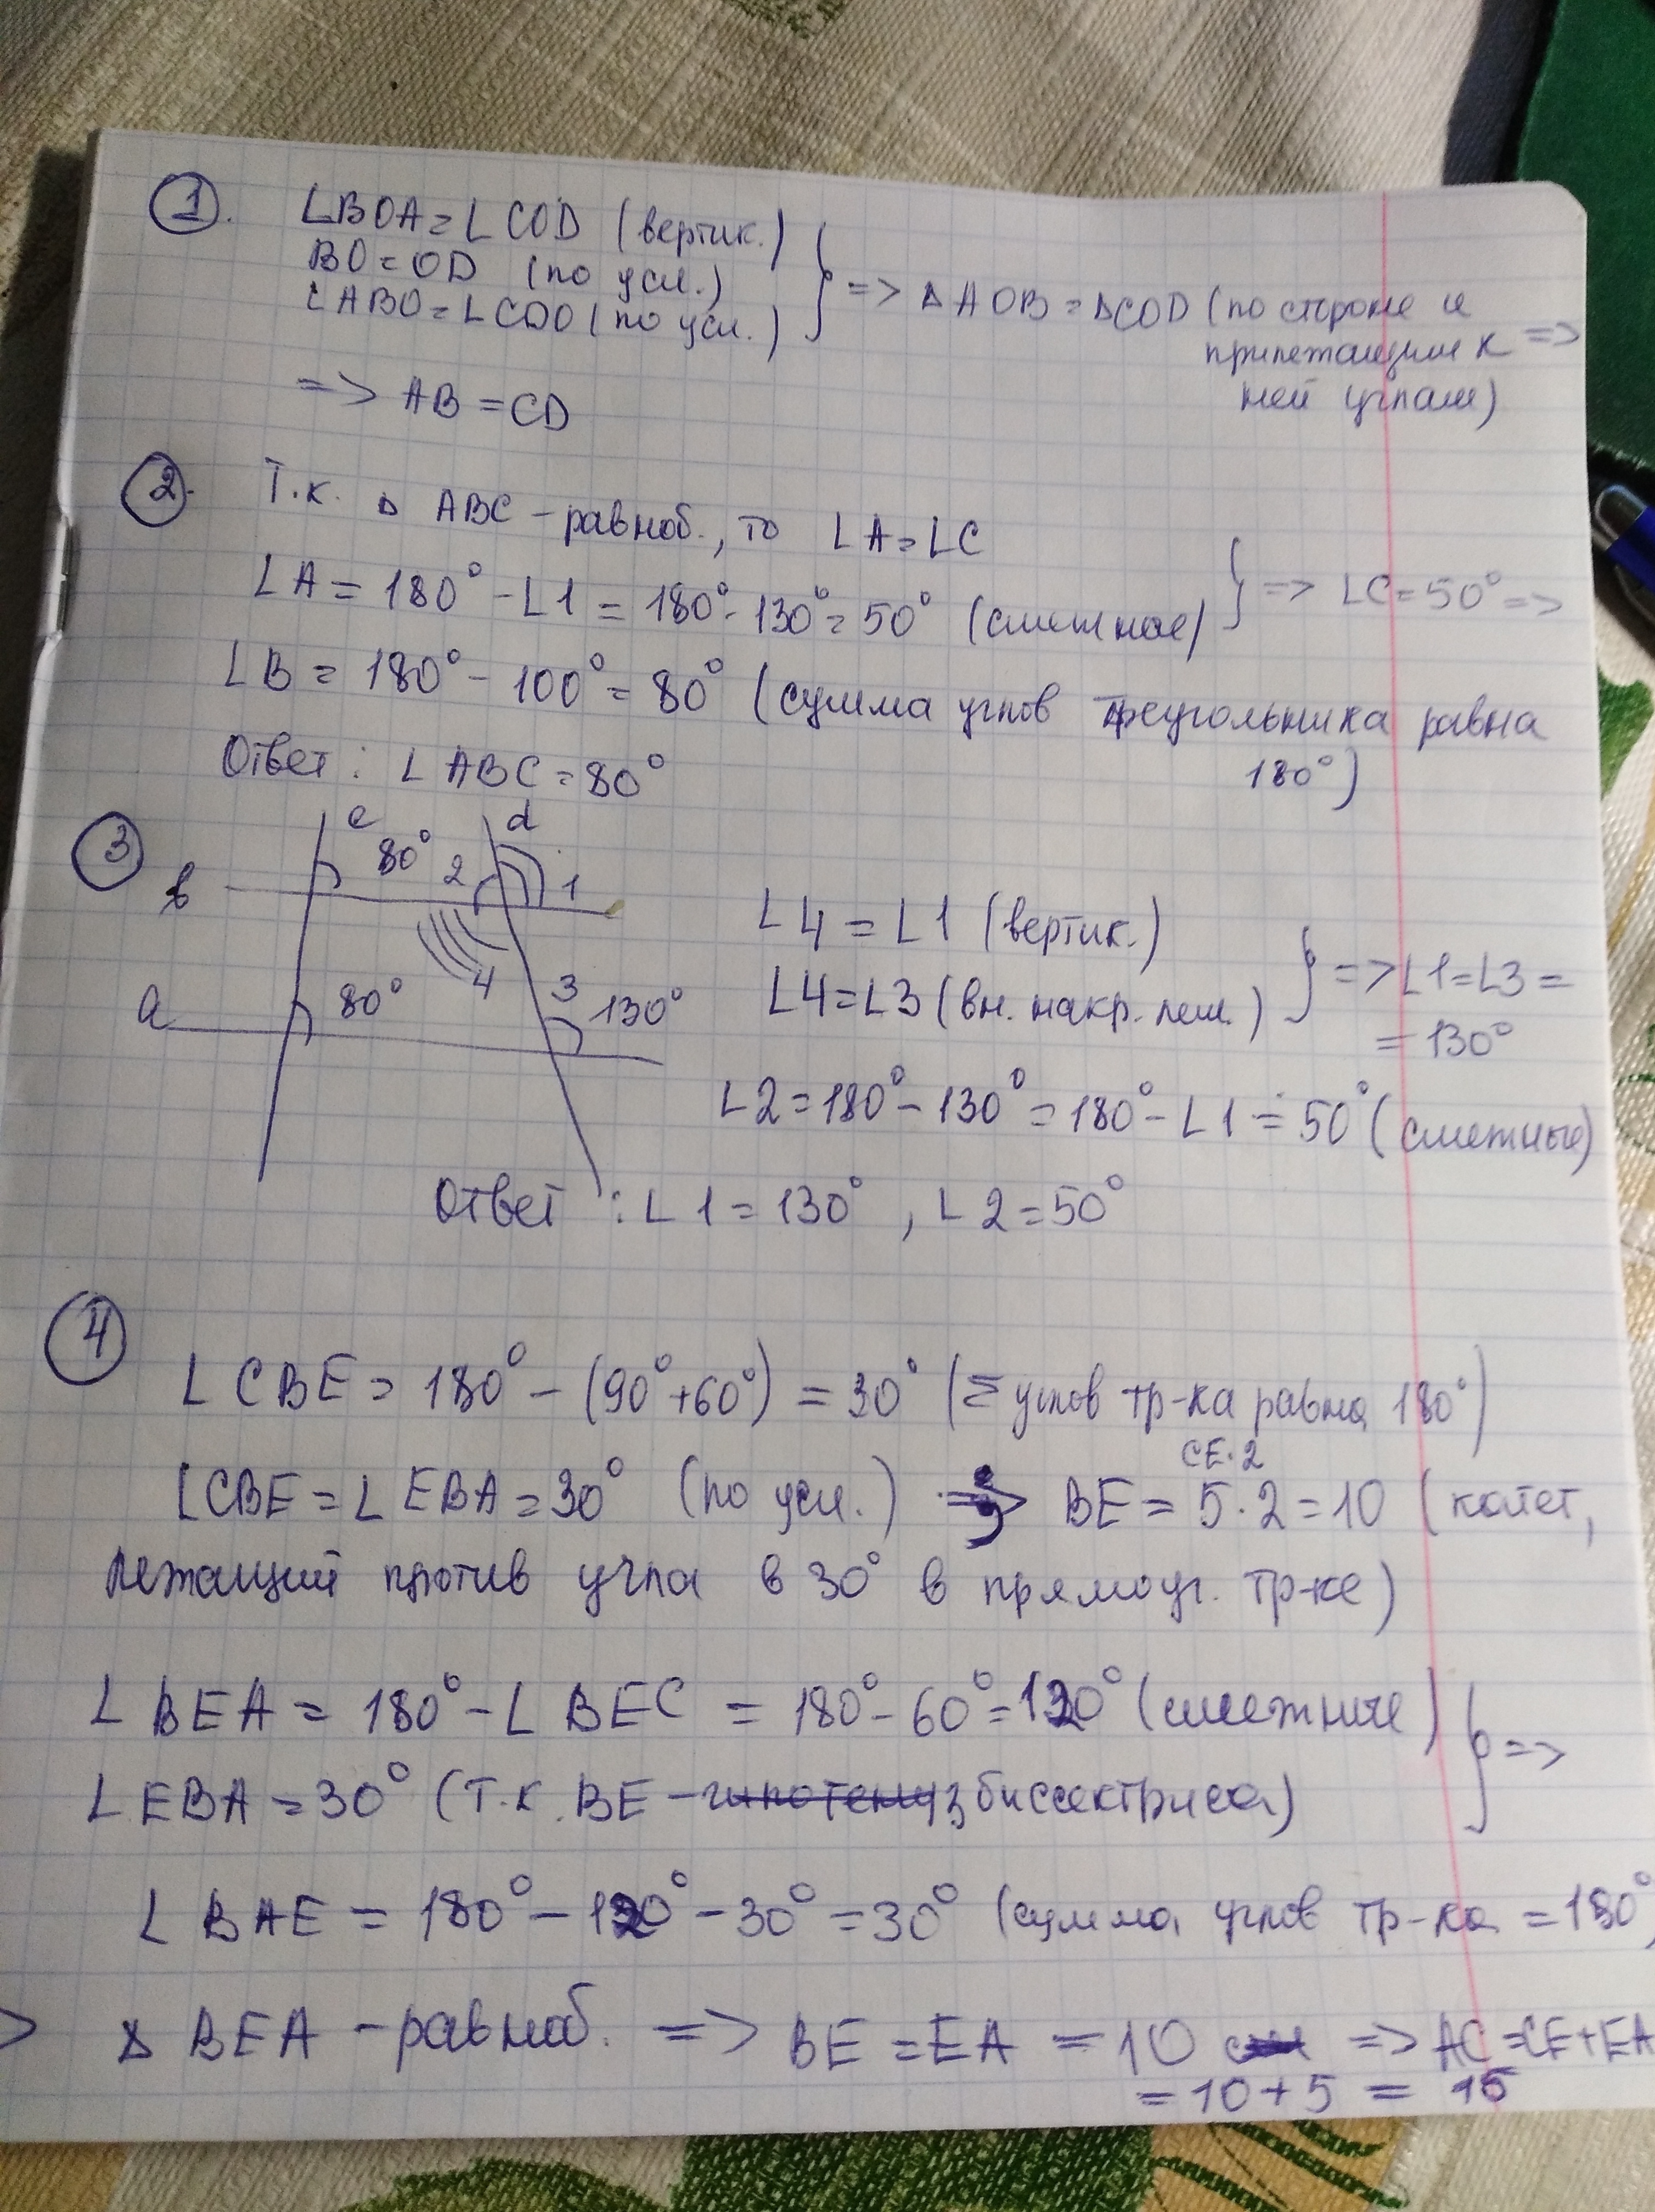 1. ∠BOA = ∠COD (вертик.)
BO = OD (по усл.)
∠ABO = ∠CDO (по усл.)
=> △AOB = △COD (по стороне и
прилежащим к =>
ней углам)
=> AB = CD
2. Т.к. △ ABC – равноб., то ∠A = ∠C
∠A = 180° - ∠1 = 180° - 130° = 50° (смежные) } => ∠C = 50° =>
∠B = 180° - 100° = 80° (сумма углов треугольника равна
180°)
Ответ: ∠ABC = 80°
3
c d
80° 2 1
b
4 3
a 80° 130°
∠4 = ∠1 (вертик.)
∠4 = ∠3 (вн. накр. леж.) } => ∠1 = ∠3 =
= 130°
∠2 = 180° - 130° = 180° - ∠1 = 50° (смежные)
Ответ: ∠1 = 130°, ∠2 = 50°
4
∠CBE = 180° - (90° + 60°) = 30° (Σ углов тр-ка равна 180°)
CE·2
∠CBE = ∠EBA = 30° (по усл.) => BE = 5·2 = 10 (катет,
лежащий против угла в 30° в прямоуг. тр-ке)
∠BEA = 180° - ∠BEC = 180° - 60° = 120° (смежные) } =>
∠EBA = 30° (т.к. BE – гипотенуз биссектриса)
∠BAE = 180° - 120° - 30° = 30° (сумма углов тр-ка = 180°
> △ BEA – равноб. => BE = EA = 10 см => AC = CE + EA
= 10 + 5 = 15